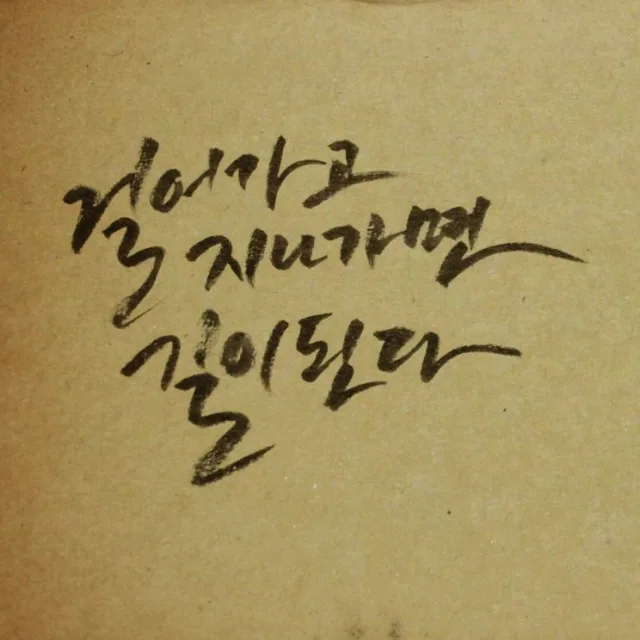 걸어가고
지나가면
길이 된다